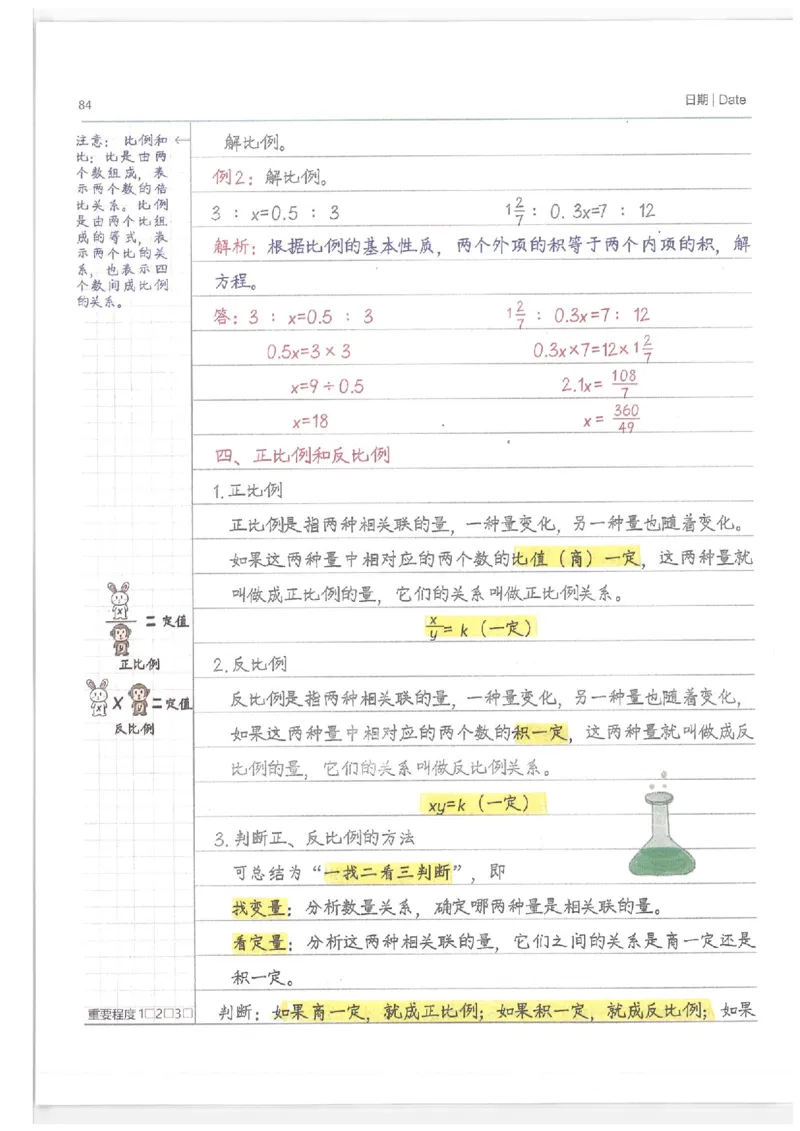 84
日期 | Date
注意：比例和
比：比是由两
个数组成，表
示两个数的倍
比关系。比例
是由两个比组
成的等式，表
示两个比的关
系，也表示四
个数间成比例
的关系。
解比例。
例2：解比例。
3 : x=0.5 : 3    1 2/7 : 0.3x=7 : 12
解析：根据比例的基本性质，两个外项的积等于两个内项的积，解
方程。
答：3 : x=0.5 : 3    1 2/7 : 0.3x=7 : 12
0.5x=3×3    0.3x×7=12×1 2/7
x=9÷0.5    2.1x= 108/7
x=18    x= 360/49
四、正比例和反比例
1.正比例
正比例是指两种相关联的量，一种量变化，另一种量也随着变化。
如果这两种量中相对应的两个数的比值（商）一定，这两种量就
叫做成正比例的量，它们的关系叫做正比例关系。
x/y = k（一定）
x
y
=定值
正比例
2.反比例
反比例是指两种相关联的量，一种量变化，另一种量也随着变化，
如果这两种量中相对应的两个数的积一定，这两种量就叫做成反
比例的量，它们的关系叫做反比例关系。
xy=k（一定）
x × y =定值
反比例
3.判断正、反比例的方法
可总结为“一找二看三判断”，即
找变量：分析数量关系，确定哪两种量是相关联的量。
看定量：分析这两种相关联的量，它们之间的关系是商一定还是
积一定。
判断：如果商一定，就成正比例；如果积一定，就成反比例；如果
重要程度 1□2□3□